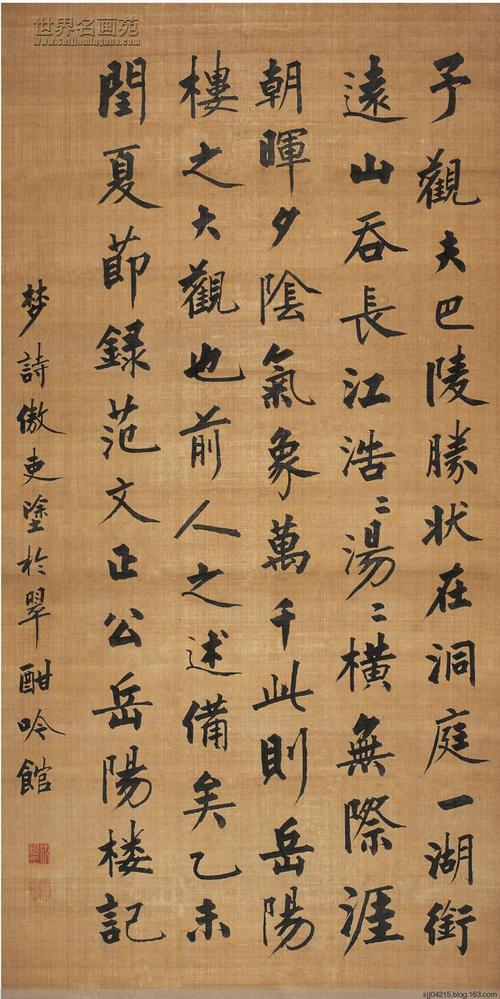 世界名画苑
www.sjmhw.com
予觀夫巴陵勝状在洞庭一湖銜
遠山吞長江浩〻湯〻橫無際涯
朝暉夕陰氣象萬千此則岳陽
樓之大觀也前人之述備矣乙未
閏夏節録范文正公岳陽楼記
梦詩傲吏塗於翠酣吟館
sjj04215.blog.163.com